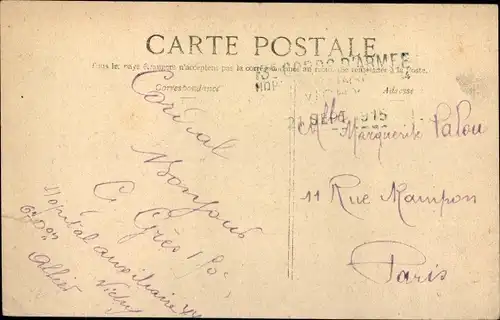 CARTE POSTALE
Tous les pays étrangers n'acceptent pas la correspondance au recto, se renseigner à la Poste.
Correspondance
Adresse
CORPS D'ARMEE
21 SEPT 1915
Cordial
Bonjour
Hôpital auxiliaire
Vichy
Allier
Mlle Marguerite
11 Rue Rampon
Paris